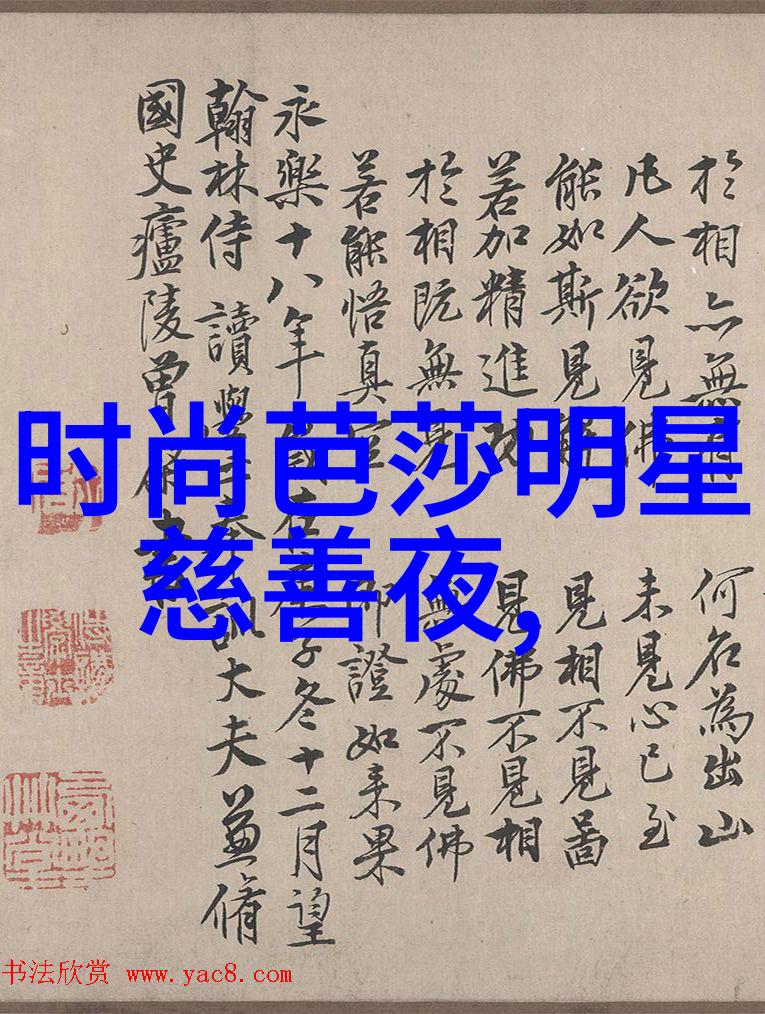 於相亦無有 何名為出山
凡人欲見佛 未見心已至
能如斯見解 見相不見啚
若加精進 見佛不見相
於相既無見 無處不見佛
若能悟真空 即證如来果
永樂十八年歲在庚子冬十二月望
翰林侍讀學士奉訓大夫兼脩
國史廬陵曾
时尚芭莎明星
慈善夜,
书法欣赏 www.yac8.com